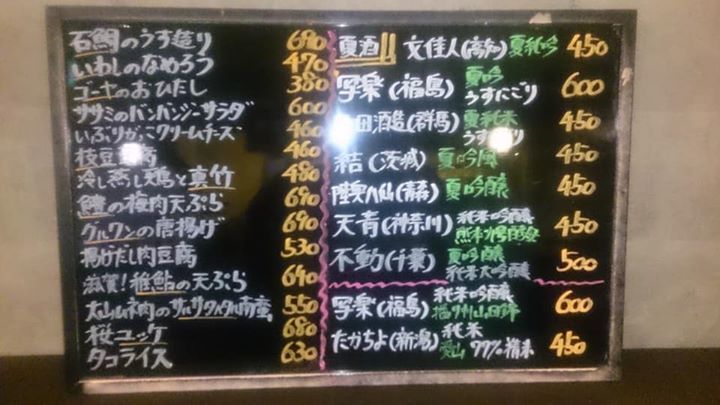 石鯛のうす造り 690
いわしのなめろう 470
ゴーヤのおひたし 380
ササミのバンバンジーサラダ 600
いぶりがっこクリームチーズ 460
枝豆 腐 460
冷し蒸し鶏と真竹 480
鱧の梅肉天ぷら 690
グルクンの唐揚げ 690
揚げだし肉豆腐 530
滋賀!稚鮎の天ぷら 640
550
桜ユッケ 680
タコライス 630
夏酒!! 文佳人(高知) 夏純吟 450
写楽(福島) 夏吟 うすにごり 600
田酒造(群馬) 夏純米 うすにごり 450
結(茨城) 夏吟風 450
陸奥八仙(青森) 夏吟醸 450
天青(神奈川) 純米吟醸 450
不動(千葉) 夏吟醸 純米大吟醸 500
写楽(福島) 純米吟醸 播州山田錦 600
たかちよ(新潟) 純米 愛山 77%精米 450